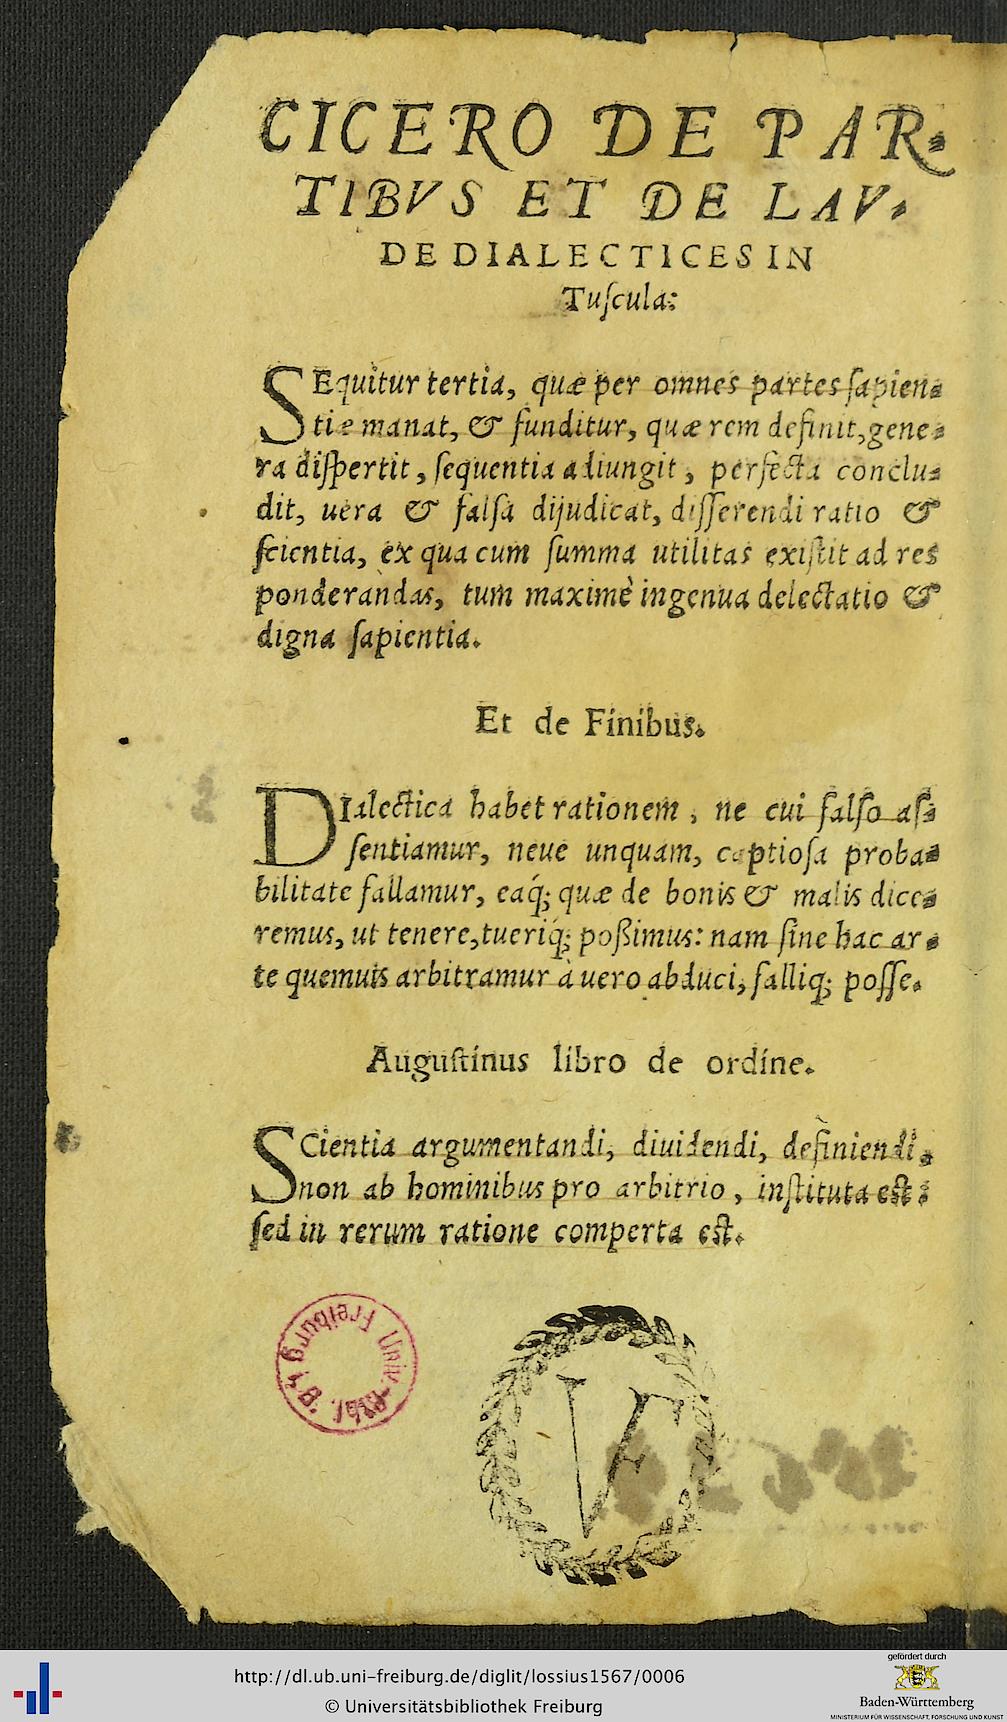 CICERO DE PAR⸗
TIBVS ET DE LAV⸗
DE DIALECTICES IN
Tuſcula:
SEquitur tertia, quæ per omnes partes ſapien⸗
tiæ manat, & funditur, quæ rem definit, gene⸗
ra diſpertit, ſequentia adiungit, perfecta conclu⸗
dit, uera & falſa dijudicat, diſſerendi ratio &
ſcientia, ex qua cum ſumma utilitas exiſtit ad res
ponderandas, tum maximè ingenua delectatio &
digna ſapientia.
Et de Finibus.
DIalectica habet rationem, ne cui falſo aſ⸗
ſentiamur, neue unquam, captioſa proba⸗
bilitate fallamur, eaq́; quæ de bonis & malis dice⸗
remus, ut tenere, tueriq́; poßimus: nam ſine hac ar⸗
te quemuis arbitramur à uero abduci, falliq; poſſe.
Auguſtinus libro de ordine.
SCientia argumentandi, diuidendi, definiendi,
non ab hominibus pro arbitrio, inſtituta eſt:
ſed in rerum ratione comperta eſt.
Univ.-Bibl. Freiburg i. B.
VF
http://dl.ub.uni-freiburg.de/diglit/lossius1567/0006
© Universitätsbibliothek Freiburg
gefördert durch
Baden-Württemberg
MINISTERIUM FÜR WISSENSCHAFT, FORSCHUNG UND KUNST